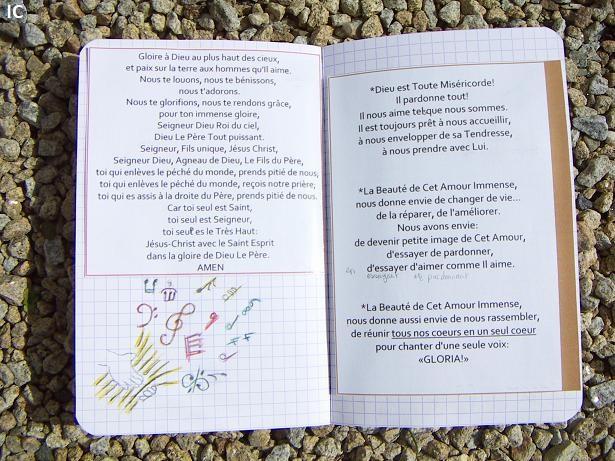 IC
Gloire à Dieu au plus haut des cieux,
et paix sur la terre aux hommes qu'Il aime.
Nous te louons, nous te bénissons,
nous t'adorons.
Nous te glorifions, nous te rendons grâce,
pour ton immense gloire,
Seigneur Dieu Roi du ciel,
Dieu Le Père Tout puissant.
Seigneur, Fils unique, Jésus Christ,
Seigneur Dieu, Agneau de Dieu, Le Fils du Père,
toi qui enlèves le péché du monde, prends pitié de nous;
toi qui enlèves le péché du monde, reçois notre prière;
toi qui es assis à la droite du Père, prends pitié de nous.
Car toi seul est Saint,
toi seul est Seigneur,
toi seul es le Très Haut:
Jésus-Christ avec le Saint Esprit
dans la gloire de Dieu Le Père.
AMEN
*Dieu est Toute Miséricorde!
Il pardonne tout!
Il nous aime tel que nous sommes.
Il est toujours prêt à nous accueillir,
à nous envelopper de sa Tendresse,
à nous prendre avec Lui.
*La Beauté de Cet Amour Immense,
nous donne envie de changer de vie...
de la réparer, de l'améliorer.
Nous avons envie:
de devenir petite image de Cet Amour,
d'essayer de pardonner,
d'essayer d'aimer comme Il aime.
en essayant de pardonner
*La Beauté de Cet Amour Immense,
nous donne aussi envie de nous rassembler,
de réunir tous nos coeurs en un seul coeur
pour chanter d'une seule voix:
«GLORIA!»